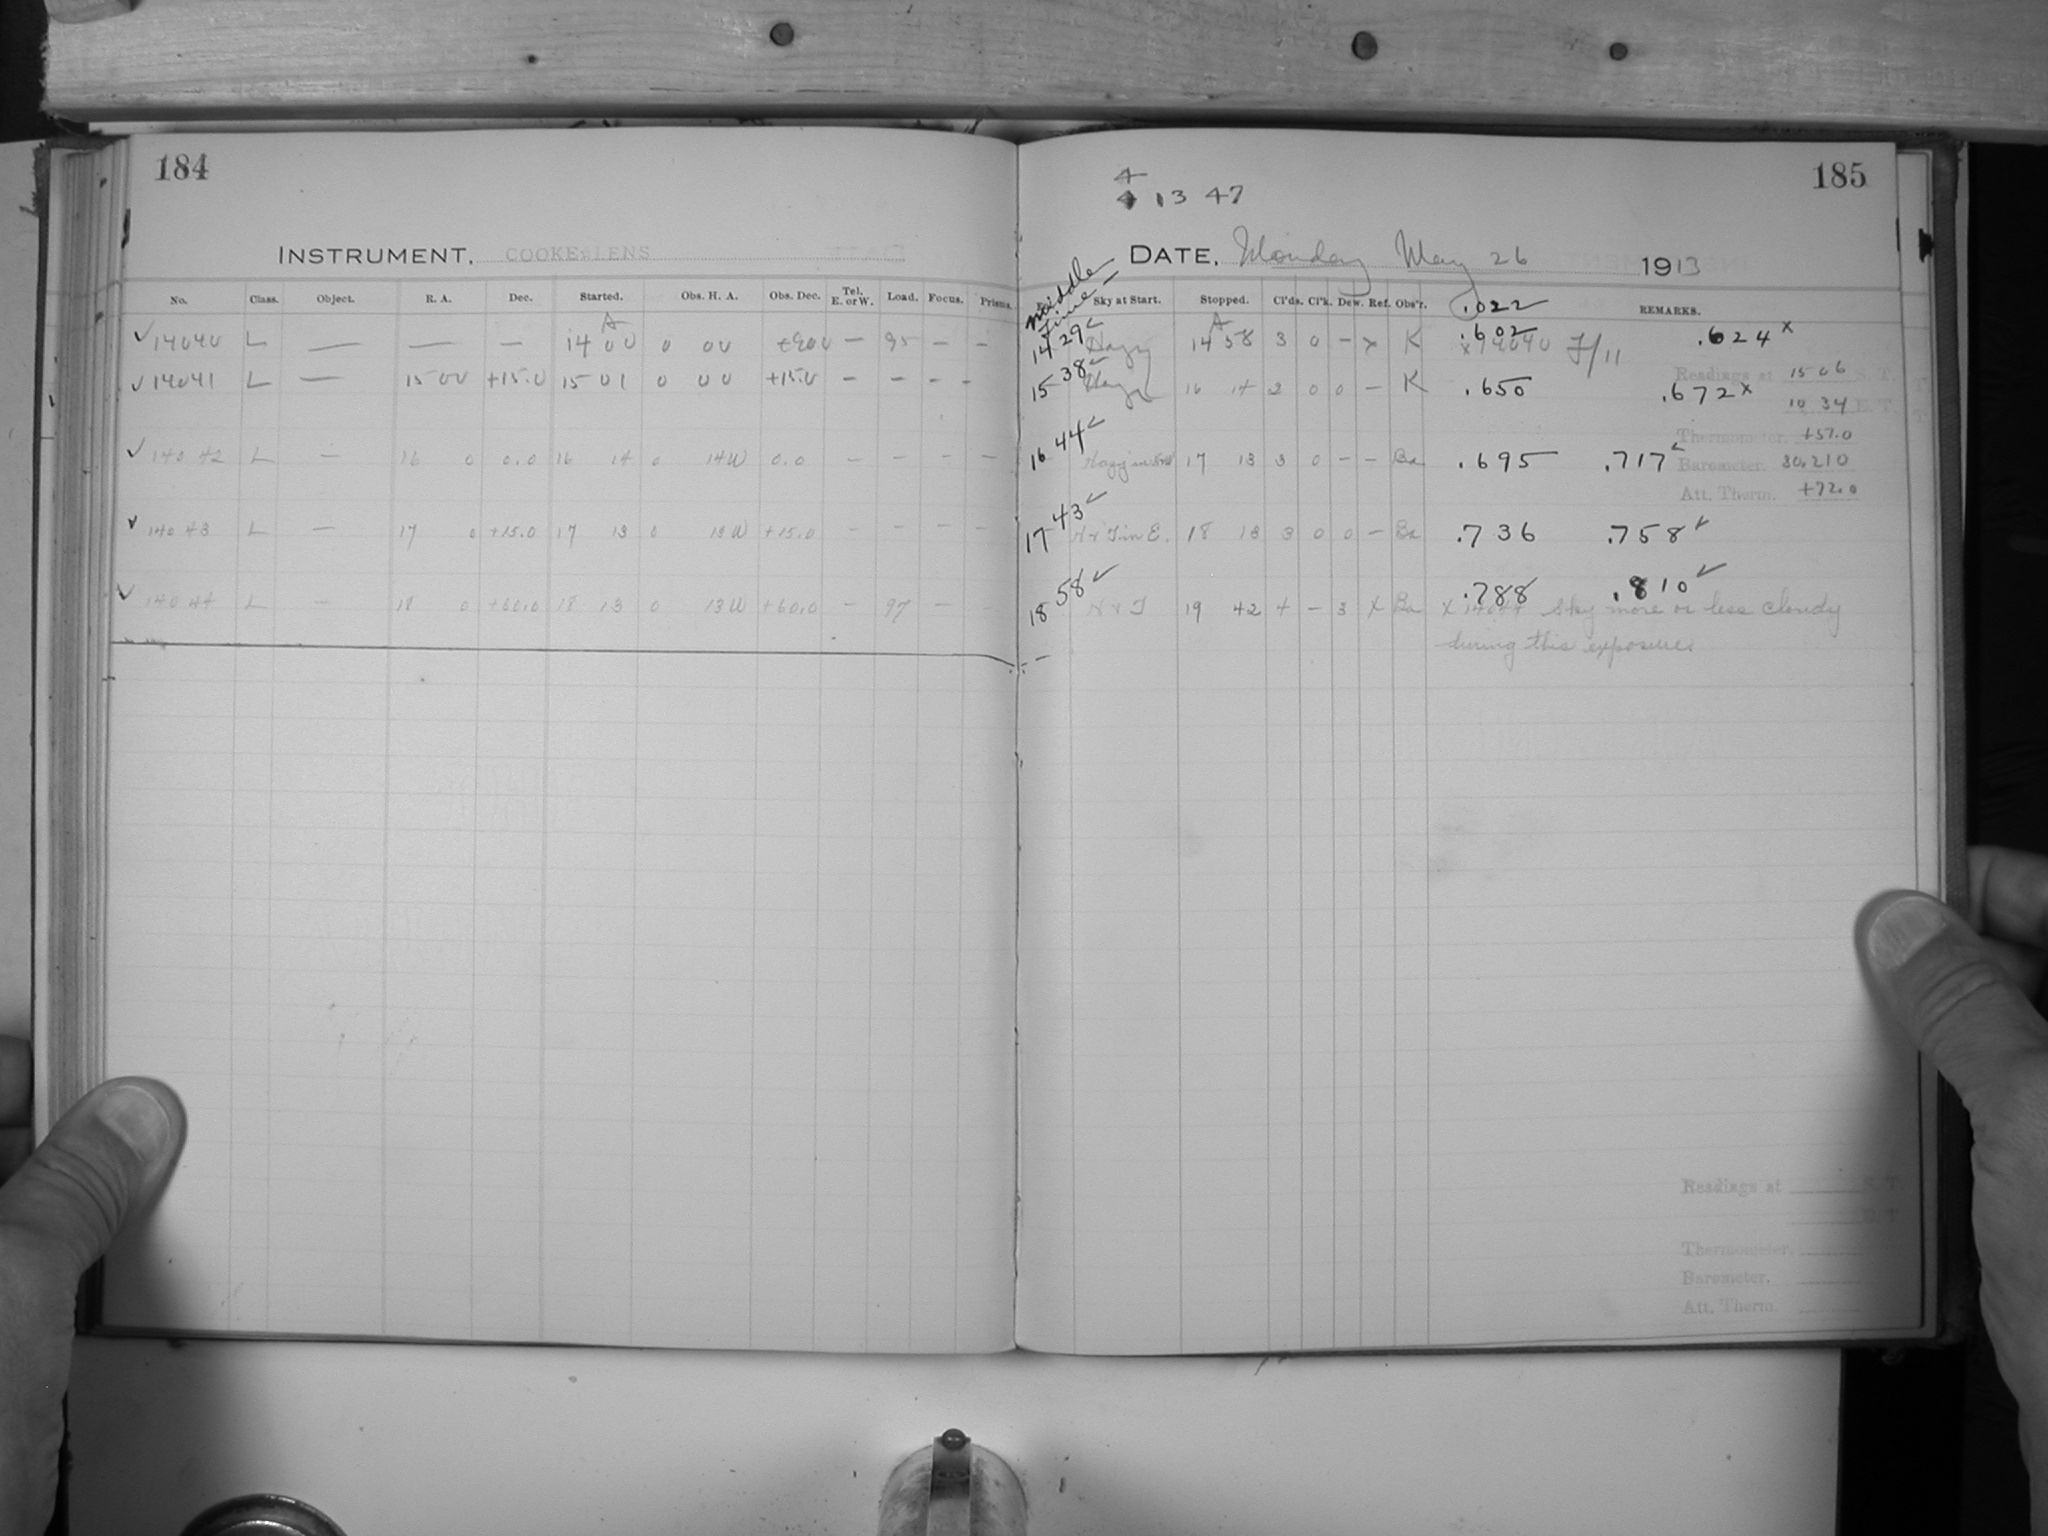 184
INSTRUMENT. COOKE LENS
No. Class. Object. R. A. Dec. Started. Obs. H. A. Obs. Dec. Tel. E. or W. Load. Focus. Prisms.
14040 L — — — 14 00 0 00 +90 0 — 95 — —
14041 L — 15 00 +15.0 15 01 0 00 +15.0 — — — —
14042 L — 16 0 0.0 16 14 0 14W 0.0 — — — —
14043 L — 17 0 +15.0 17 13 0 13W +15.0 — — — —
14044 L — 18 0 +60.0 18 13 0 13W +60.0 — 97 — —
185
4
13 47
DATE. Monday May 26 1913
Middle Time
Sky at Start. Stopped. Cl'ds. Cl'k. Dew. Ref. Obs'r. REMARKS.
.022
14 29 Hazy 14 58 3 0 — x K .602 .624 x
x 14040 F/11
15 38 Hazy 16 14 2 0 0 — K .650 .672 x
16 44 Hazy in 17 13 3 0 — — Ba .695 .717
17 43 in E. 18 13 3 0 0 — Ba .736 .758
18 58 19 42 + — 3 x Ba .788 .810
x 14044 Sky more or less cloudy
during this exposure.
Readings at 15 06 S. T.
10 34 E. T.
Thermometer. +57.0
Barometer. 30.210
Att. Therm. +72.0
Readings at S. T.
E. T.
Thermometer.
Barometer.
Att. Therm.